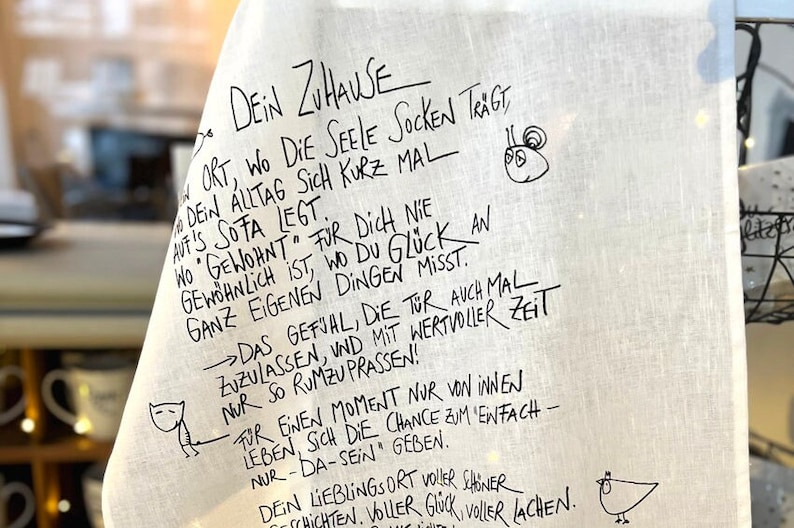 DEIN ZUHAUSE
EIN ORT, WO DIE SEELE SOCKEN TRÄGT,
WO DEIN ALLTAG SICH KURZ MAL
AUF'S SOFA LEGT.
WO "GEWOHNT" FÜR DICH NIE
GEWÖHNLICH IST, WO DU GLÜCK AN
GANZ EIGENEN DINGEN MISST.
→ DAS GEFÜHL, DIE TÜR AUCH MAL
ZUZULASSEN, UND MIT WERTVOLLER ZEIT
NUR SO RUMZUPRASSEN!
FÜR EINEN MOMENT NUR VON INNEN
LEBEN, SICH DIE CHANCE ZUM "EINFACH-
NUR-DA-SEIN" GEBEN.
DEIN LIEBLINGSORT VOLLER SCHÖNER
GESCHICHTEN. VOLLER GLÜCK, VOLLER LACHEN.